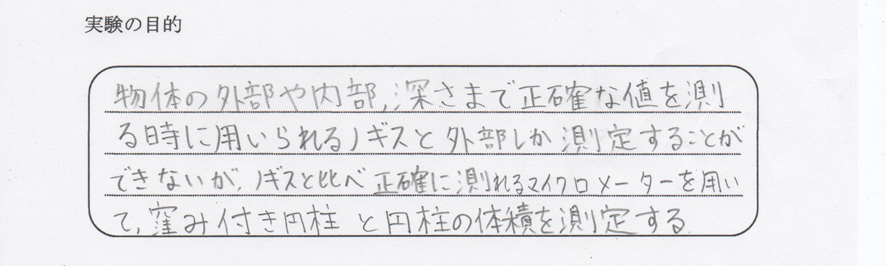 実験の目的
物体の外部や内部,深さまで正確な値を測
る時に用いられるノギスと外部しか測定することが
できないが,ノギスと比べ正確に測れるマイクロメーターを用い
て,窪み付き円柱と円柱の体積を測定する